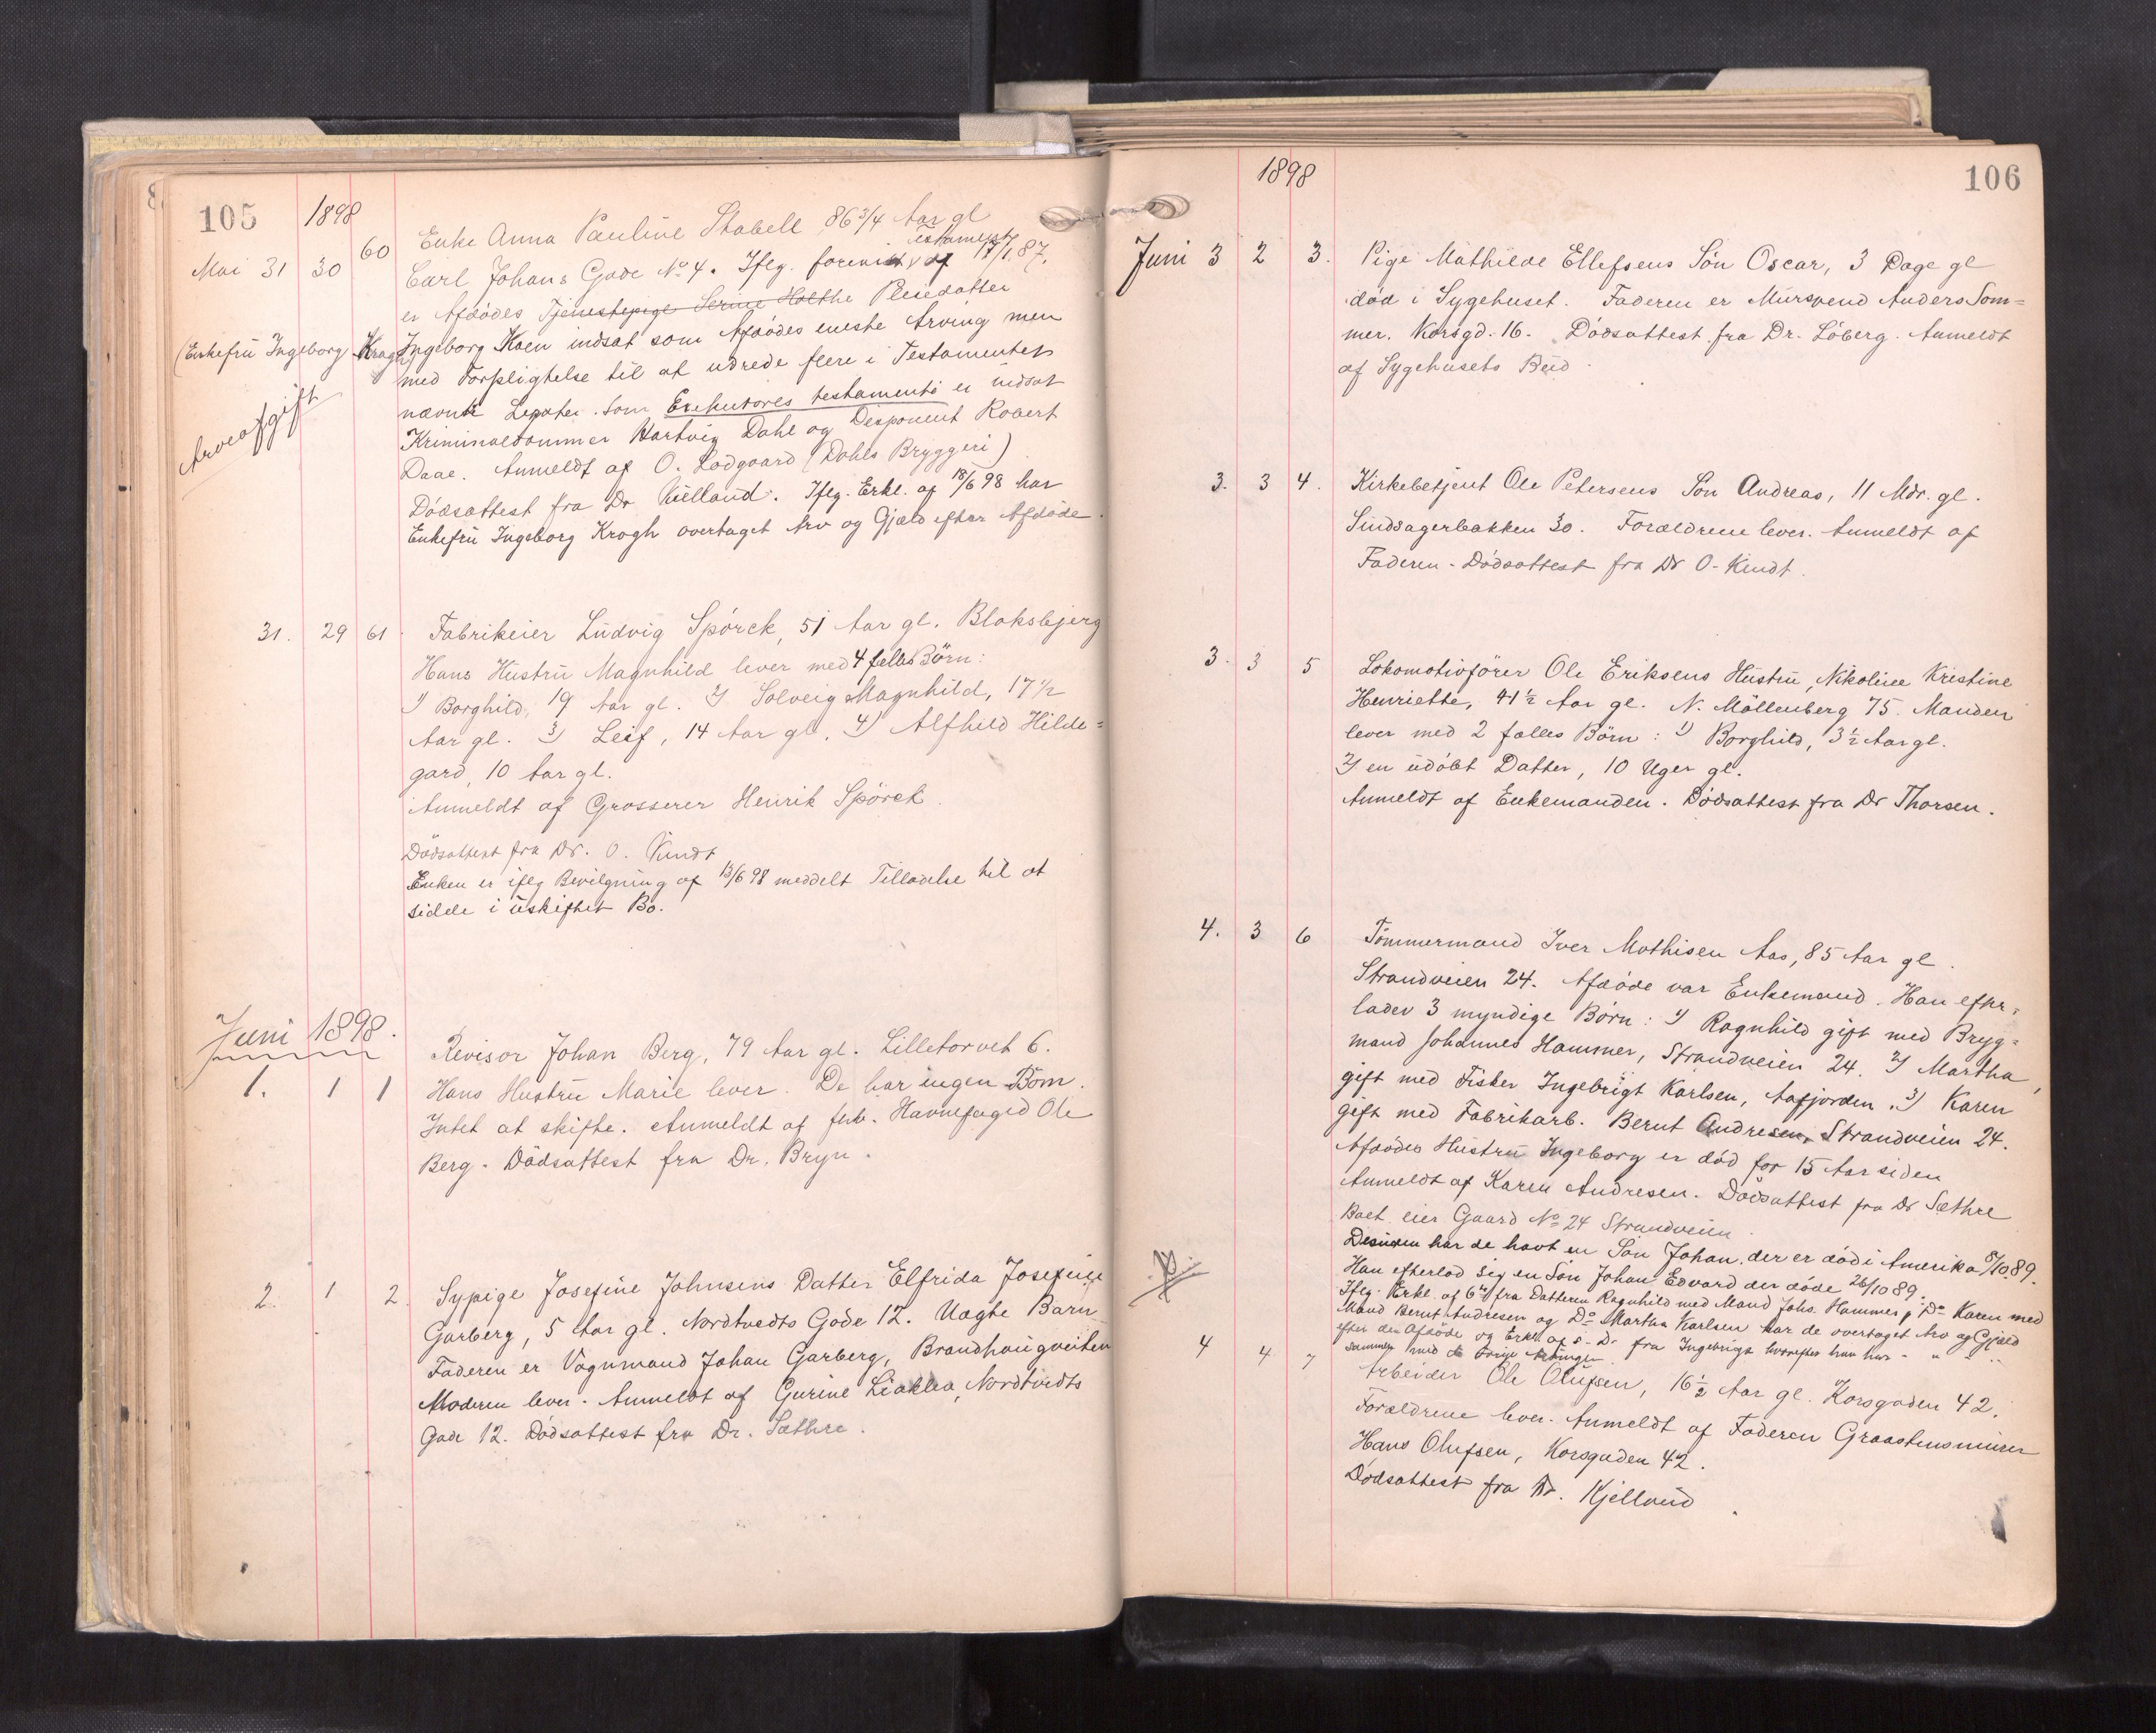 105 1898
Mai 31 30 60 Enke Anna Pauline Stabell 86 3/4 Aar gl
Testament
Carl Johans Gade No 4. Iflg. forevist af 17/1 87,
er Afdødes Tjenestepige Serine Holthe Pleiedatter
(Enkefru Ingeborg Krogh) Ingeborg Koen indsat som Afdødes eneste Arving men
med Forpligtelse til at udrede flere i Testamentet
Arveafgift
nævnte Legater. Som Executores testamenti er indsat
Kriminaldommer Hartvig Dahl og Disponent Robert
Daae. Anmeldt af O. Lodgaard (Dahls Bryggeri)
Dödsattest fra Dr Kielland. Iflg. Erkl. af 18/6 98 har
Enkefru Ingeborg Krogh overtaget Arv og Gjæld efter Afdøde.
31. 29 61. Fabrikeier Ludvig Spörck, 51 Aar gl. Bloksbjerg
Hans Hustru Magnhild lever med 4 fælles Börn:
1) Borghild, 19 Aar gl. 2) Solveig Magnhild, 17 1/2
Aar gl. 3) Leif, 14 Aar gl. 4) Alfhild Hilde=
gard, 10 Aar gl.
Anmeldt af Grosserer Henrik Spörck.
Dödsattest fra Dr. O. Kindt
Enken er iflg Bevilgning af 13/6 98 meddelt Tilladelse til at
sidde i uskiftet Bo.
Juni 1898.
Revisor Johan Berg, 79 Aar gl. Lilletorvet 6.
1. 1 1 Hans Hustru Marie lever. De har ingen Börn.
Intet at skifte. Anmeldt af fhv. Havnefoged Ole
Berg. Dödsattest fra Dr. Bryn.
2. 1 2. Sypige Josefine Johnsens Datter Elfrida Josefine
Garberg, 5 Aar gl. Nordtvedts Gade 12. Uægte Barn
Faderen er Vognmand Johan Garberg, Brandhaugveiten
Moderen lever. Anmeldt af Gurine Liaklea, Nordtvedts
Gade 12. Dödsattest fra Dr. Sæthre.
1898 106
Juni 3 2 3. Pige Mathilde Ellefsens Sön Oscar, 3 Dage gl
död i Sygehuset. Faderen er Mursvend Anders Som=
mer. Korsgd. 16. Dödsattest fra Dr. Löberg. Anmeldt
af Sygehusets Bud.
3. 3 4. Kirkebetjent Ole Petersens Sön Andreas, 11 Mdr. gl.
Sindsagerbakken 30. Forældrene lever. Anmeldt af
Faderen. Dödsattest fra Dr O. Kindt.
3. 3 5 Lokomotivförer Ole Eriksens Hustru, Nikoline Kristine
Henriette, 41 1/2 Aar gl. N. Möllenberg 75. Manden
lever med 2 fælles Börn: 1) Borghild, 3 1/2 Aar gl.
2) en udöbt Datter, 10 Uger gl.
Anmeldt af Enkemanden. Dödsattest fra Dr Thorsen.
4. 3 6 Tömmermand Iver Mathisen Aas, 85 Aar gl.
Strandveien 24. Afdöde var Enkemand. Han efter=
lader 3 myndige Börn: 1) Ragnhild gift med Bryg=
mand Johannes Hammer, Strandveien 24. 2) Martha,
gift med Fisker Ingebrigt Karlsen, Aafjorden. 3) Karen
gift med Fabrikarb. Bernt Andresen, Strandveien 24.
Afdödes Hustru Ingeborg er död for 15 Aar siden
Anmeldt af Karen Andresen. Dödsattest fra Dr Sæthre
Boet eier Gaard No 24 Strandveien.
Desuden har de havt en Sön Johan, der er död i Amerika 5/10 89.
Han efterlod sig en Sön Johan Edvard der döde 26/10 89.
Iflg. Erkl. af fra Datteren Ragnhild med Mand Johs. Hammer, Do Karen med
Mand Bernt Andresen og Do Martha Karlsen har de overtaget Arv og Gjæld
efter den Afdöde og Erkl. af s. D. fra Ingebrigt hvorefter han har " " "
sammen med de övrige Arvinger.
4 4 7 Arbeider Ole Olufsen, 16 1/2 Aar gl. Korsgaden 42.
Forældrene lever. Anmeldt af Faderen Graastensmurer
Hans Olufsen, Korsgaden 42.
Dödsattest fra Dr. Kjelland.